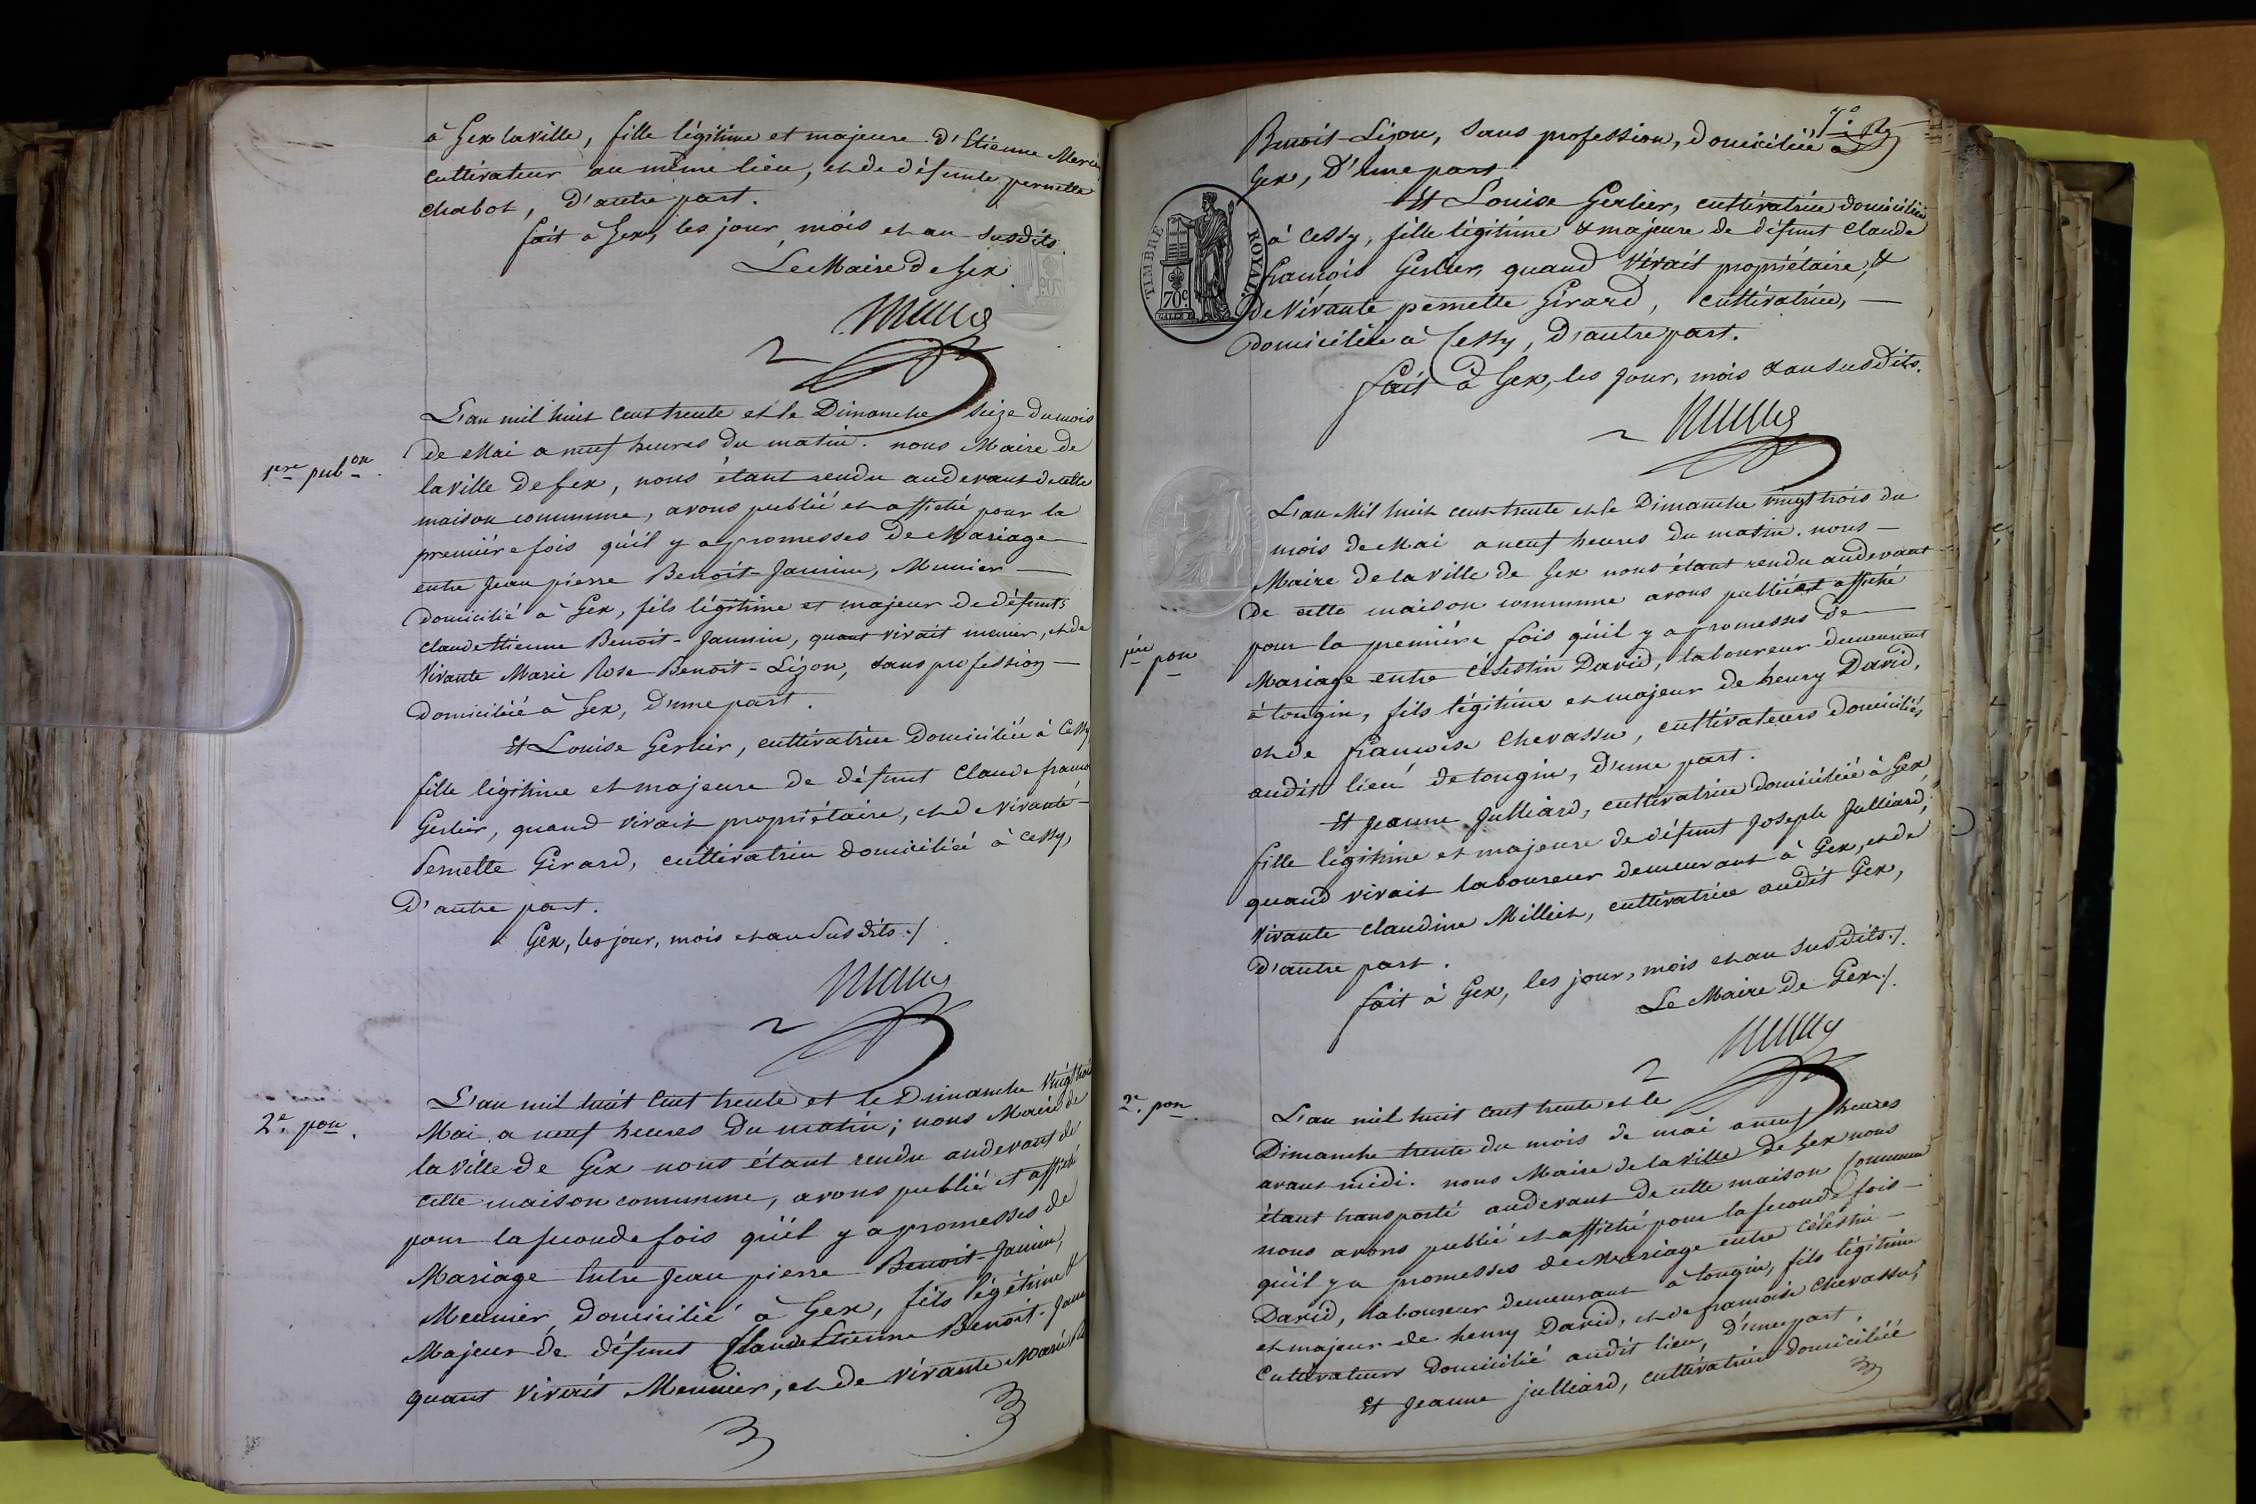 à Gex la ville, fille légitime et majeure d'Etienne Mercier
cultivateur au même lieu, et de défunte pernette
chabot, d'autre part.
fait à Gex, les jour, mois et an susdits.
Le Maire de Gex
L'an mil huit cent trente et le Dimanche seize du mois
1ere pubon
de Mai a neuf heures du matin. nous Maire de
la ville de Gex, nous étant rendu au devant de cette
maison commune, avons publié et affiché pour la
première fois qu'il y a promesses de Mariage
entre Jean pierre Benoit-Jannin, Munier
Domicilié à Gex, fils légitime et majeur de défunts
claude Etienne Benoit-Jannin, quant vivait meunier, et de
Vivante Marie Rose Benoit-Lizon, sans profession
Domiciliée à Gex, d'une part.
Et Louise Gerlier, cultivatrice Domiciliée à Cessy
fille légitime et majeure de défunt Claude françois
Gerlier, quand vivait propriétaire, et de Vivante
Pernette Girard, cultivatrice domiciliée à Cessy,
D'autre part.
Gex, les jour, mois et an susdits./
L'an mil huit cent trente et le Dimanche Vingt trois
2e. pon.
Mai a neuf heures du matin; nous Maire de
la Ville de Gex nous étant rendu au devant de
cette maison commune, avons publié et affiché
pour la seconde fois qu'il y a promesses de
Mariage Entre Jean pierre Benoit-Jannin,
Meunier domicilié à Gex, fils légitime &
Majeur de défunt Claude Etienne Benoit-Jann
quant vivait Meunier, et de vivante Marie R
7e.
Benoit-Lizon, sans profession, domiciliée à
Gex, D'une part
Et Louise Gerlier, cultivatrice domiciliée
à Cessy, fille légitime & majeure de défunt Claude
françois Gerlier, quand Vivait propriétaire, &
de Vivante pernette Girard, cultivatrice,
domiciliée à Cessy, D'autre part.
fait à Gex, les jour, mois & an susdits.
TIMBRE ROYAL
70c.
L'an Mil huit cent trente et le Dimanche vingt trois du
mois de Mai a neuf heures du matin. nous
Maire de la ville de Gex nous étant rendu au devant
de cette maison commune avons publié et affiché
pour la première fois qu'il y a promesses de
1ere pon
Mariage entre Célestin David, laboureur demeurant
à tougin, fils légitime et majeur de henry David,
et de françoise Chevassu, cultivateurs domiciliés
audit lieu de tougin, D'une part.
Et Jeanne Julliard, cultivatrice domiciliée à Gex,
fille légitime et majeure de défunt Joseph Julliard,
quand vivait laboureur demeurant à Gex, et de
Vivante claudine Milliet, cultivatrice audit Gex,
d'autre part.
fait à Gex, les jour, mois et an susdits./.
Le Maire de Gex./.
2e. pon
L'an mil huit cent trente et le
Dimanche trente du mois de mai a neuf heures
avant midi. nous Maire de la ville de Gex nous
étant transporté au devant de cette maison commune
nous avons publié et affiché pour la seconde fois
qu'il y a promesses de Mariage entre Célestin
David, laboureur demeurant à tougin, fils légitime
et majeur de henry David, et de françoise Chevassu,
Cultivateurs domicilié audit lieu, D'une part.
Et Jeanne julliard, cultivatrice domiciliée